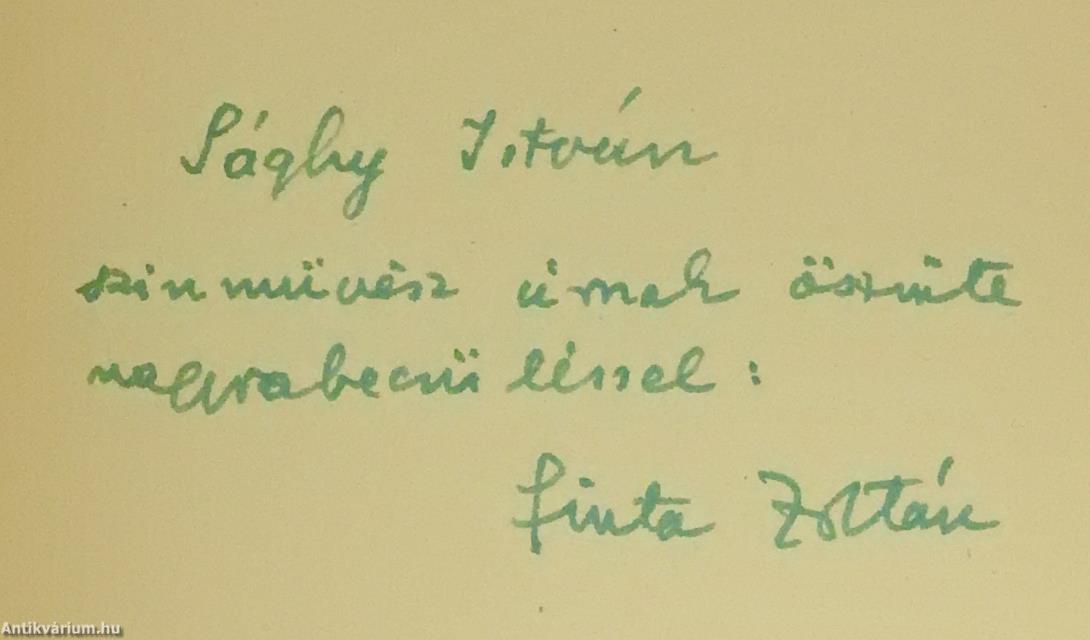 Sághy István
szinművész úrnak őszinte
nagyrabecsüléssel:
Finta Zoltán
Antikvárium.hu